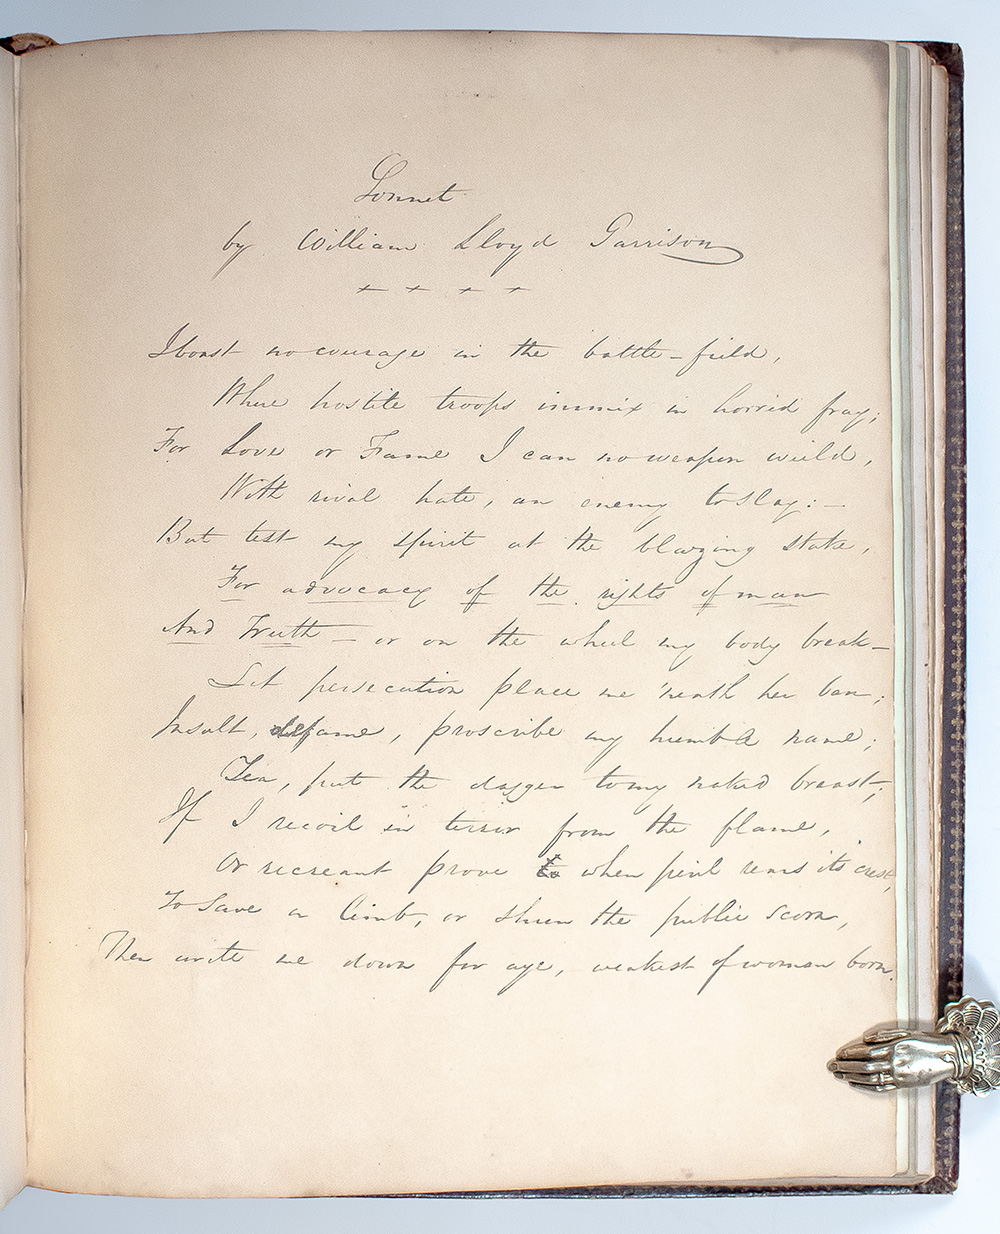 Sonnet
by William Lloyd Garrison
+ + + +
I boast no courage in the battle-field,
Where hostile troops immix in horrid fray;
For Love or Fame I can no weapon wield,
With rival hate, an enemy to slay:—
But test my spirit at the blazing stake,
For advocacy of the rights of man
And Truth — or on the wheel my body break—
Let persecution place me 'neath her ban;
Insult, defame, proscribe my humble name;
Yea, put the dagger to my naked breast;
If I recoil in terror from the flame,
Or recreant prove when peril rears its crest,
To Save a limb, or shun the public scorn,
Then write me down for aye, weakest of woman born.